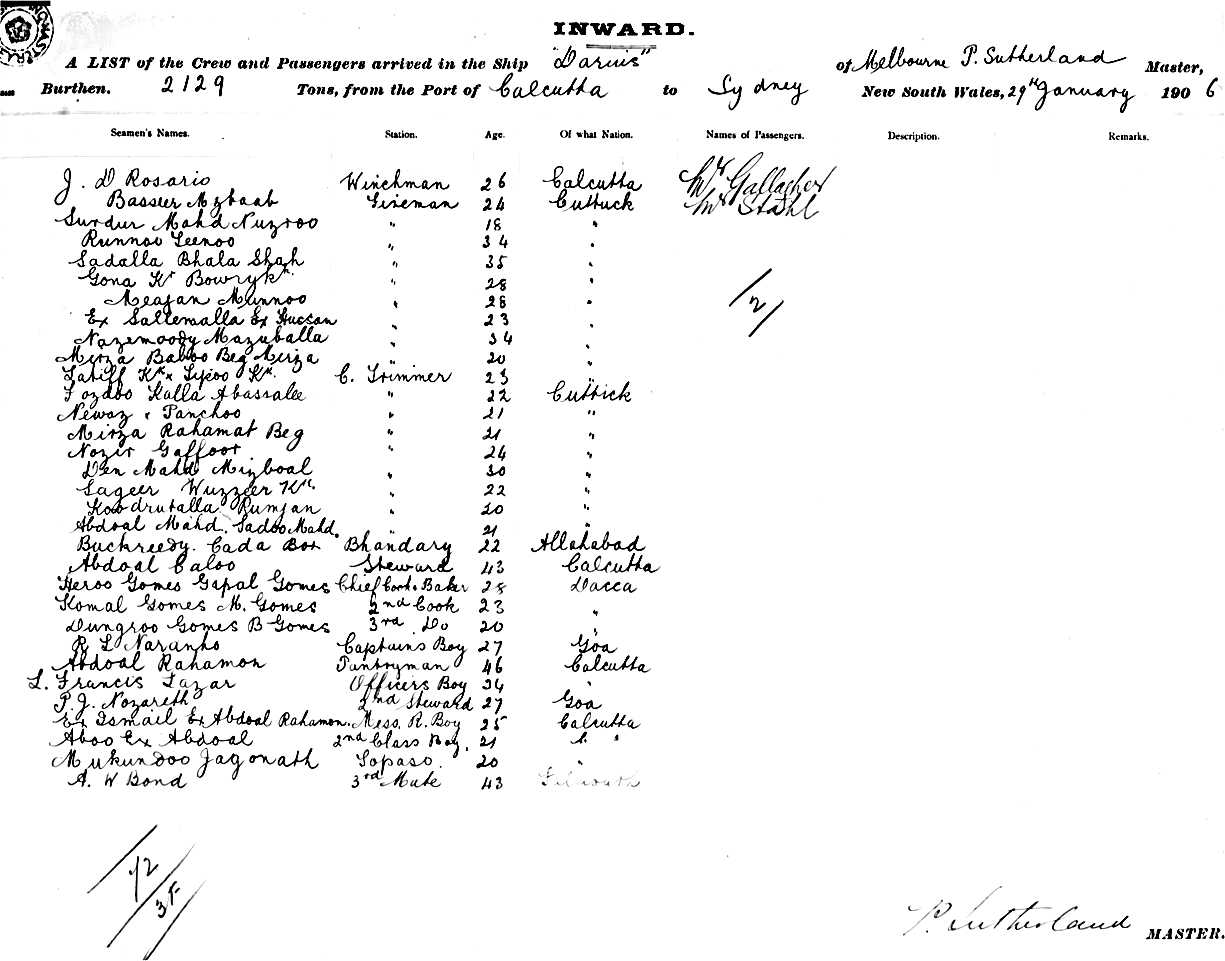 INWARD.
A LIST of the Crew and Passengers arrived in the Ship "Darius" of Melbourne P. Sutherland Master,
Burthen. 2129 Tons, from the Port of Calcutta to Sydney New South Wales, 29th January 1906
Seamen's Names. Station. Age. Of what Nation. Names of Passengers. Description. Remarks.
J. D Rosario Winchman 26 Calcutta Mr Gallagher
Bassier Mizbaab Fireman 24 Cuttuck Mr Stahl
Surdur Mahd Nuzroo " 18 "
Runnoo Teenoo " 34 "
Sadalla Bhala Shah " 35 "
Gona Kn Bowry Kn " 28 "
Meajan Munnoo " 28 "
Ex Saltemalla Ex Hucsan " 23 "
Nazemoody Mazuballa " 34 "
Mirza Baboo Beg Mirza " 20 "
Latiff Kn Kn. C. Trimmer 23 "
Fozdoo Kalla Abassalee " 22 Cuttick
Newaz Panchoo " 21 "
Mirza Rahamat Beg " 21 "
Nozir Gaffoor " 24 "
Den Mahd Mizboal " 30 "
Sageer Wuzzeer Kn. " 22 "
Koodrutalla Rumjan " 20 "
Abdoal Mahd. Sadoo Mahd. " 21 "
Buckreedy. Cada Box Bhandary 22 Allahabad
Abdoal Caloo Steward 43 Calcutta
Heroo Gomes Gapal Gomes Chief Cook & Baker 28 Dacca
Komal Gomes M. Gomes 2nd Cook 23 "
Dungroo Gomes B Gomes 3rd Do 20 "
R L Naranho Captains Boy 27 Goa
Abdoal Rahamon Pantryman 46 Calcutta
L. Francis Lazar Officers Boy 34 "
P. J. Nozareth 2nd Steward 27 Goa
Ex Ismail Ex Abdoal Rahamon. Mess. R. Boy 25 Calcutta
Aboo Ex Abdoal 2nd Class Boy. 21 " "
Mukundoo Jagonath Topaso. 20 "
A. W Bond 3rd Mate 43
2
12
P. Sutherland MASTER.